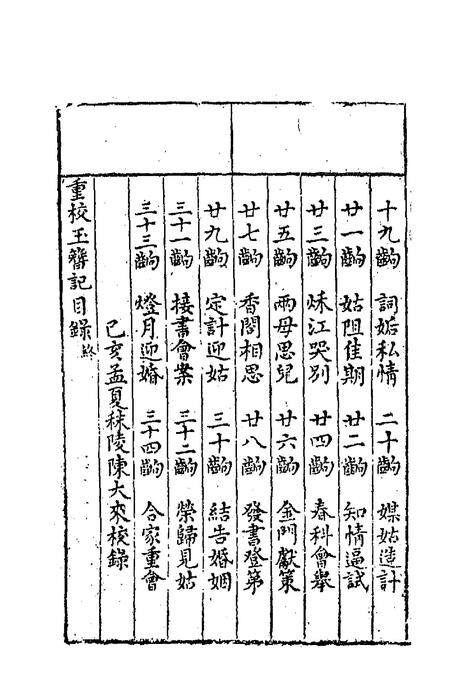 十九齣　詞姤私情　二十齣　媒姑造計
廿一齣　姑阻佳期　廿二齣　知情逼試
廿三齣　秌江哭別　廿四齣　春科會舉
廿五齣　兩母思兒　廿六齣　金門獻策
廿七齣　香閣相思　廿八齣　發書登第
廿九齣　定計迎姑　三十齣　結告婚姻
三十一齣　接書會案　三十二齣　榮歸見姑
三十三齣　燈月迎婚　三十四齣　合家重會
己亥孟夏秣陵陳大來校錄
重校玉簪記目錄終